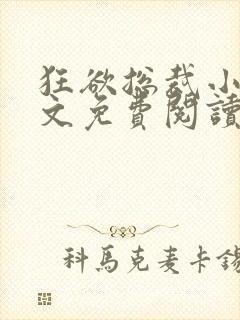 狂欲总裁小
文免費閱讀
科馬克麦卡錫